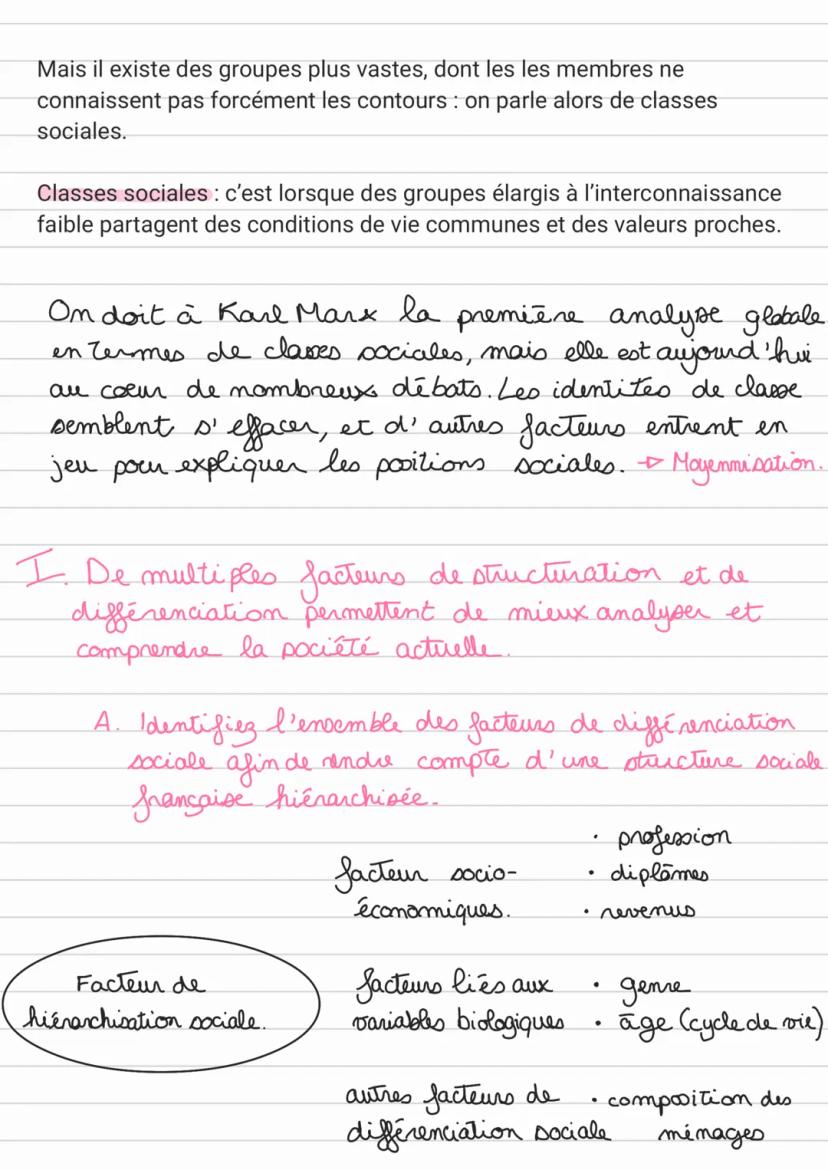 Mais il existe des groupes plus vastes, dont les les membres ne
connaissent pas forcément les contours : on parle alors de classes
sociales.
Classes sociales : c'est lorsque des groupes élargis à l'interconnaissance
faible partagent des conditions de vie communes et des valeurs proches.
On doit à Karl Marx la première analyse globale
en termes de classes sociales, mais elle est aujourd'hui
au cœur de nombreux débats. Les identités de classe
semblent s'effacer, et d'autres facteurs entrent en
jeu pour expliquer les positions sociales. → Moyennisation.
I. De multiples facteurs de structuration et de
différenciation permettent de mieux analyser et
comprendre la société actuelle.
A. Identifiez l'ensemble des facteurs de différenciation
sociale afin de rendre compte d'une structure sociale
française hiérarchisée.
• profession
facteur socio- • diplômes
économiques. • revenus
Facteur de
hiérarchisation sociale.
facteurs liés aux • genre
variables biologiques • âge (cycle de vie)
autres facteurs de • composition des
différenciation sociale ménages